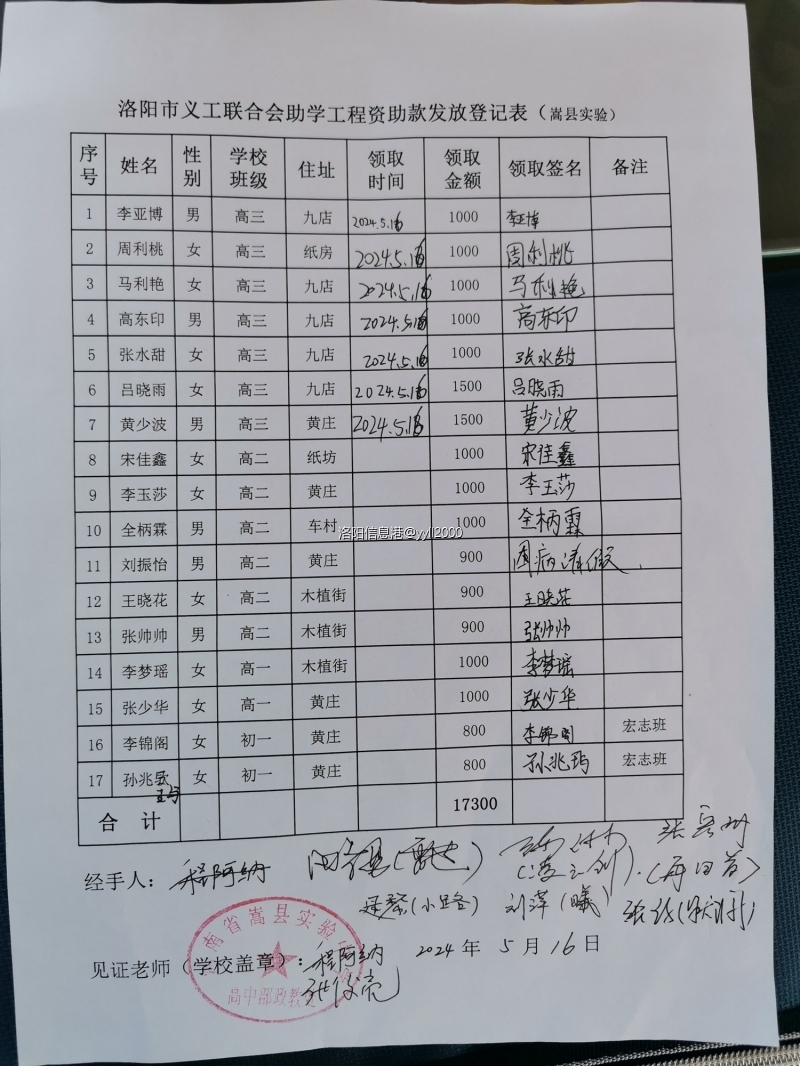 洛阳市义工联合会助学工程资助款发放登记表（嵩县实验）
序号 姓名 性别 学校班级 住址 领取时间 领取金额 领取签名 备注
1 李亚博 男 高三 九店 2024.5.16 1000 李亚博
2 周利桃 女 高三 纸房 2024.5.16 1000 周利桃
3 马利艳 女 高三 九店 2024.5.16 1000 马利艳
4 高东印 男 高三 九店 2024.5.16 1000 高东印
5 张水甜 女 高三 九店 2024.5.16 1000 张水甜
6 吕晓雨 女 高三 九店 2024.5.16 1500 吕晓雨
7 黄少波 男 高三 黄庄 2024.5.16 1500 黄少波
8 宋佳鑫 女 高二 纸坊 1000 宋佳鑫
9 李玉莎 女 高二 黄庄 1000 李玉莎
10 全柄霖 男 高二 车村 1000 全柄霖
洛阳信息港@yyll2000
11 刘振怡 男 高二 黄庄 900 因病请假.
12 王晓花 女 高二 木植街 900 王晓花
13 张帅帅 男 高二 木植街 900 张帅帅
14 李梦瑶 女 高一 木植街 1000 李梦瑶
15 张少华 女 高一 黄庄 1000 张少华
16 李锦阁 女 初一 黄庄 800 李锦阁 宏志班
17 孙兆 女 初一 黄庄 800 孙兆玙 宏志班
合计 17300
经手人：程阿纳
(小路) 刘萍(曦)
见证老师（学校盖章）：程阿纳 2024年5月16日
张俊亮
南省嵩县实验
高中部政教处